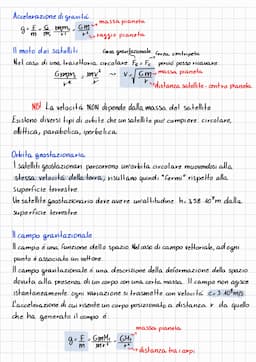 Accelerazione di gravità
g = F/m = G/m · mMp/r² = GMp/r² → massa pianeta
→ raggio pianeta
Il moto dei satelliti
forza gravitazionale forza centripeta
Nel caso di una traiettoria circolare Fg = Fc, perciò posso ricavare:
GmMp/r² = mv²/r → v = √GM/r → massa pianeta
→ distanza satellite - centro pianeta
NB! La velocità NON dipende dalla massa del satellite
Esistono diversi tipi di orbite che un satellite può compiere: circolare,
ellittica, parabolica, iperbolica.
Orbita geostazionaria
I satelliti geostazionari percorrono un'orbita circolare muovendosi alla
stessa velocità della terra, risultano quindi "fermi" rispetto alla
superficie terrestre.
Un satellite geostazionario deve avere un'altitudine h = 3.58·10⁷m dalla
superficie terrestre
Il campo gravitazionale
Il campo è una funzione dello spazio. Nel caso di campo vettoriale, ad ogni
punto è associato un vettore.
Il campo gravitazionale è una descrizione della deformazione dello spazio
dovuta alla presenza di un corpo con una certa massa. Il campo non agisce
istantaneamente: ogni variazione si trasmette con velocità c = 3·10⁸m/s
L'accelerazione di cui risente un corpo posizionato a distanza r da quello
che ha generato il campo è:
→ massa pianeta
g = F/m = GmM₁/mr² = GM₁/r²
→ distanza tra corpi